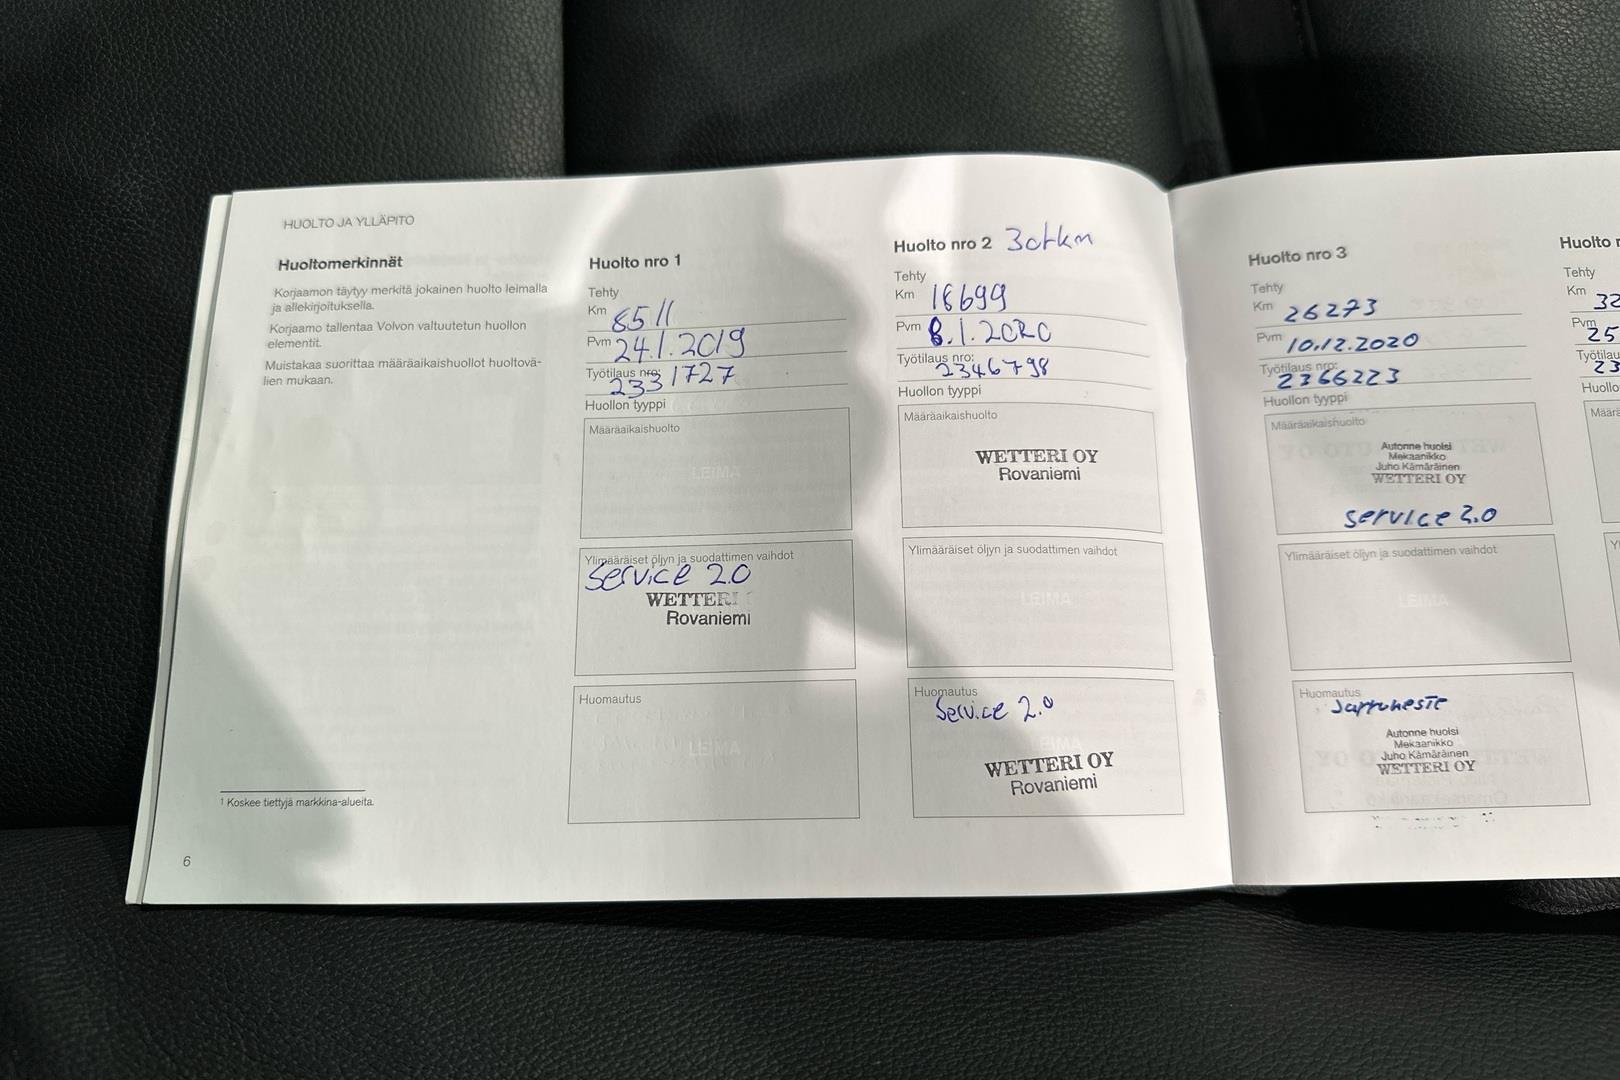 HUOLTO JA YLLÄPITO
Huoltomerkinnät
Korjaamon täytyy merkitä jokainen huolto leimalla
ja allekirjoituksella.
Korjaamo tallentaa Volvon valtuutetun huollon
elementit.
Muistakaa suorittaa määräaikaishuollot huoltovä-
lien mukaan.
1 Koskee tiettyjä markkina-alueita.
6
Huolto nro 1
Tehty
Km 8511
Pvm 24.1.2019
Työtilaus nro: 2331727
Huollon tyyppi
Määräaikaishuolto
LEIMA
Ylimääräiset öljyn ja suodattimen vaihdot
Service 2.0
WETTERI
Rovaniemi
Huomautus
LEIMA
Huolto nro 2 30tkm
Tehty
Km 18699
Pvm 8.1.2020
Työtilaus nro: 2346798
Huollon tyyppi
Määräaikaishuolto
WETTERI OY
Rovaniemi
Ylimääräiset öljyn ja suodattimen vaihdot
LEIMA
Huomautus
Service 2.0
LEIMA
WETTERI OY
Rovaniemi
Huolto nro 3
Tehty
Km 26273
Pvm 10.12.2020
Työtilaus nro: 2366223
Huollon tyyppi
Määräaikaishuolto
Autonne huolsi
Mekaanikko
Juho Kämäräinen
WETTERI OY
service 2.0
Ylimääräiset öljyn ja suodattimen vaihdot
LEIMA
Huomautus
Jarruneste
Autonne huolsi
Mekaanikko
Juho Kämäräinen
WETTERI OY
Huolto
Tehty
Km 32
Pvm 25
23